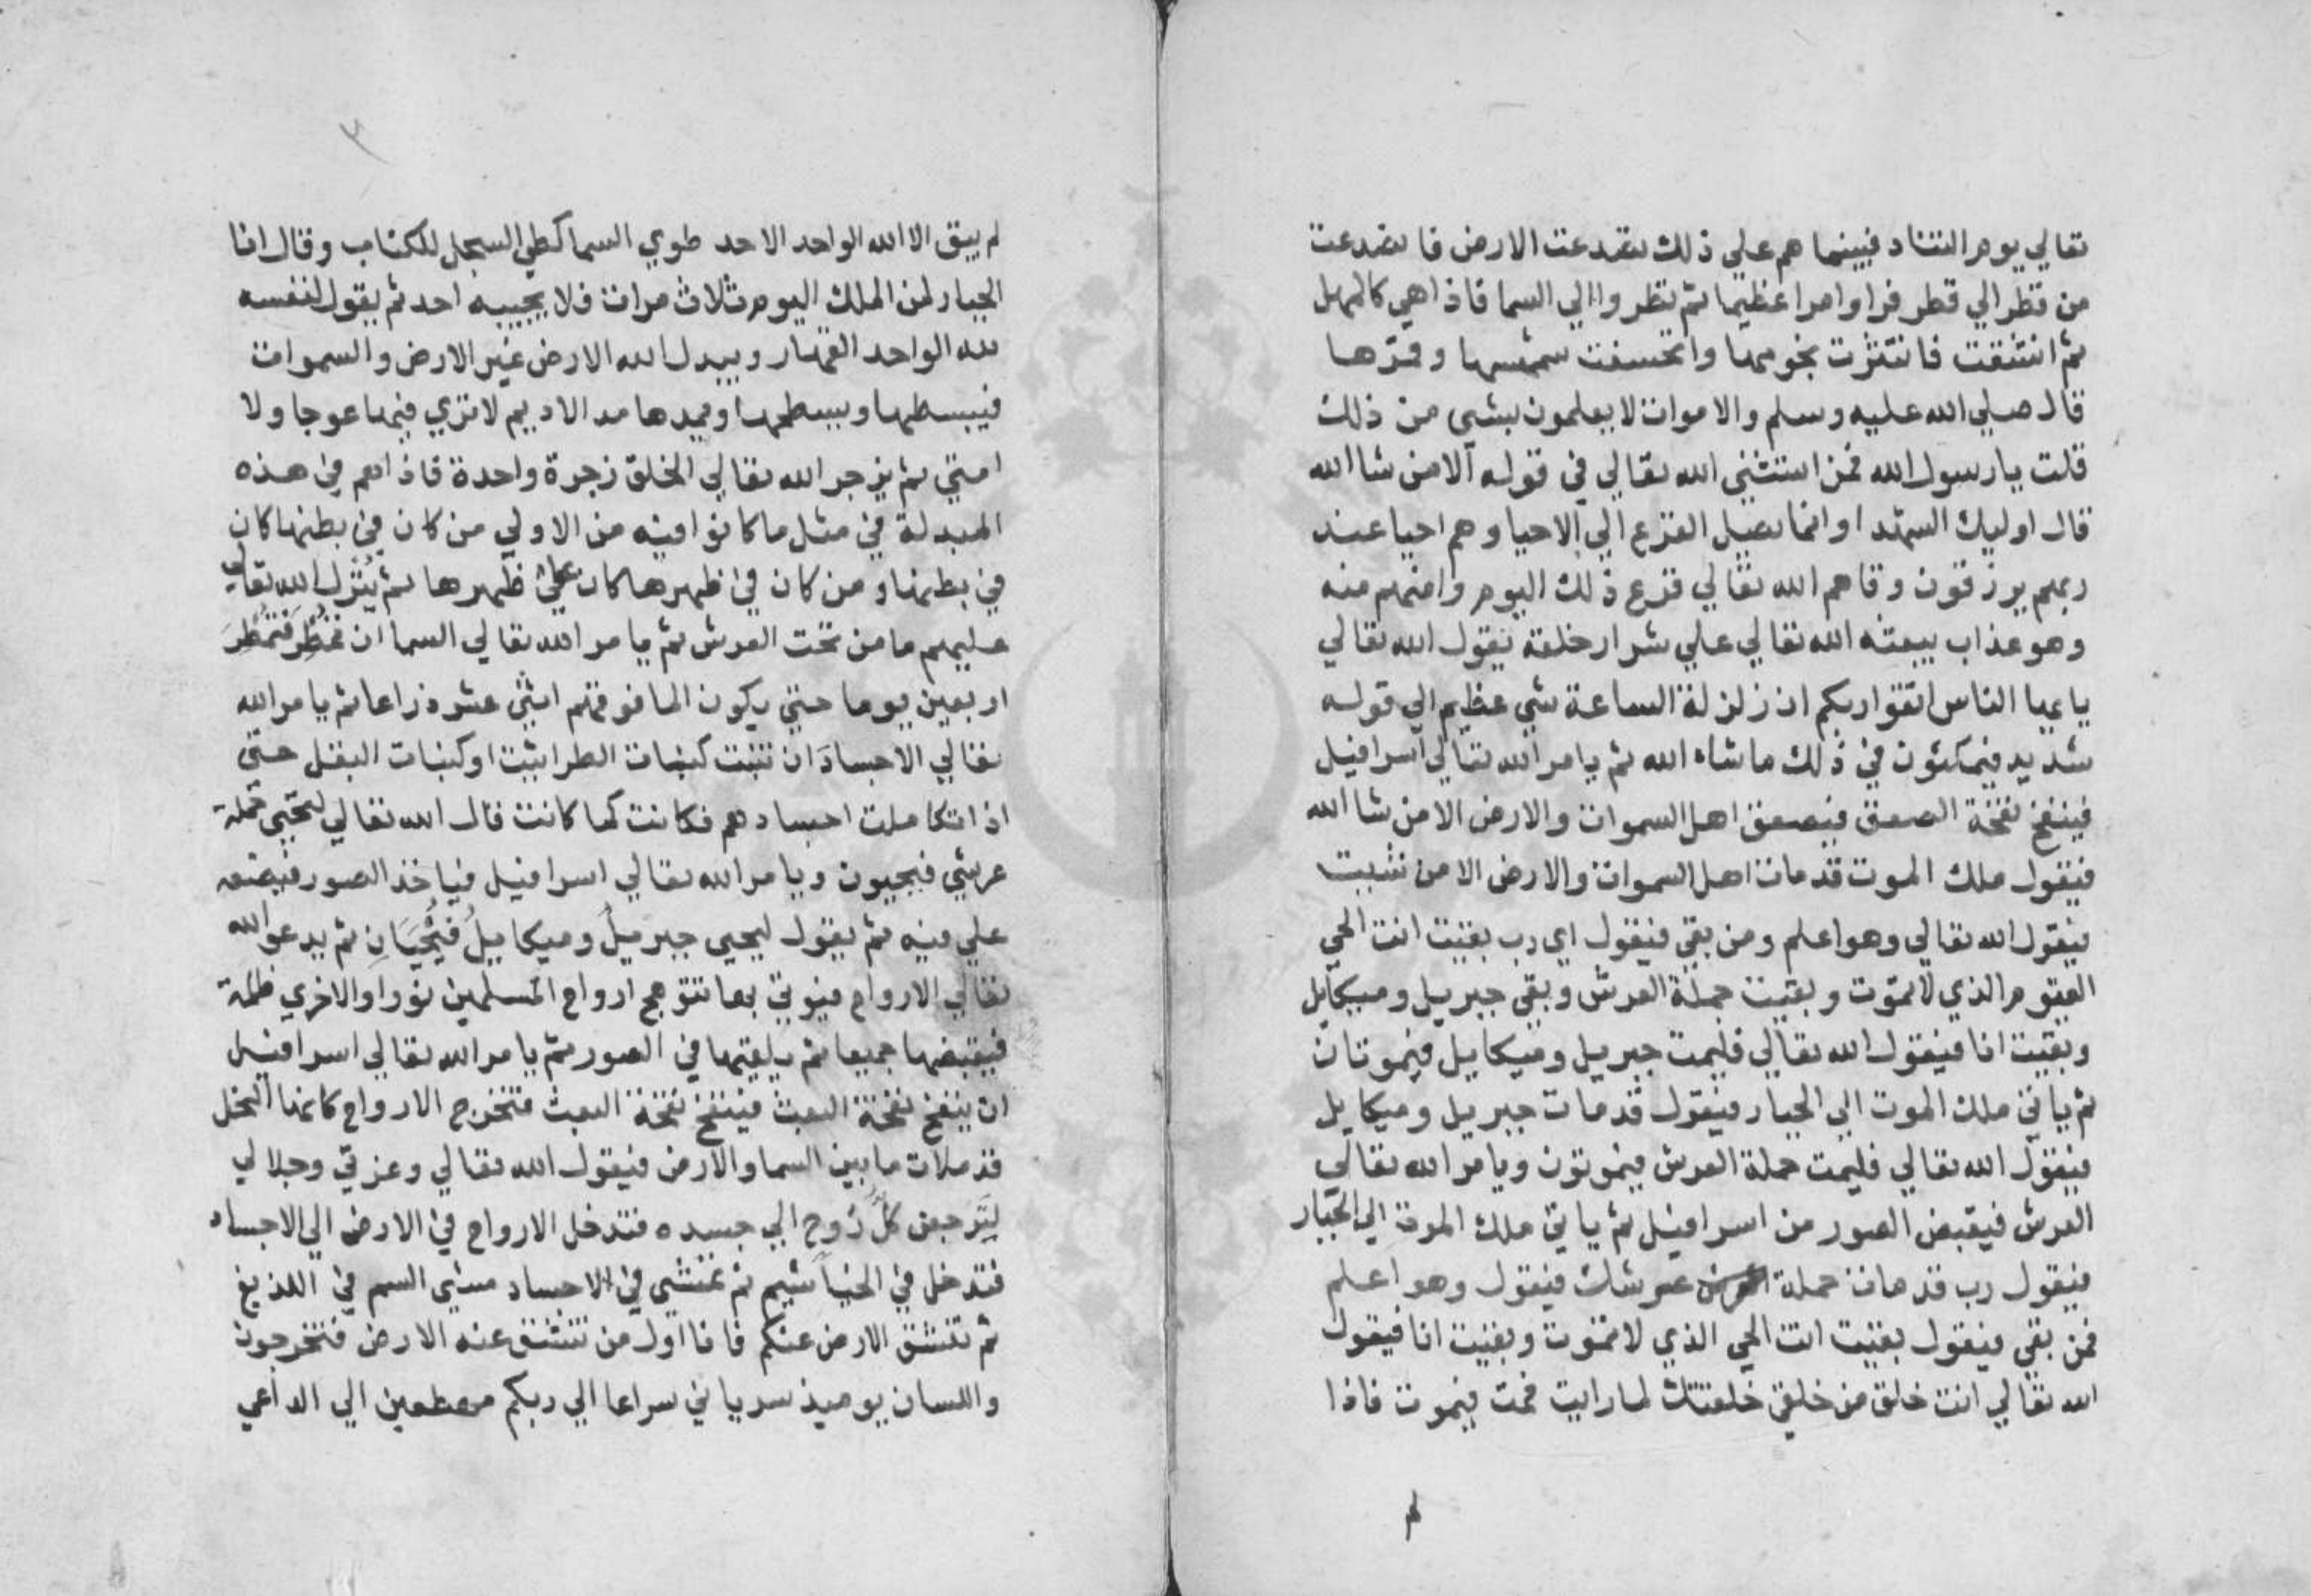 تعالي يوم التناد فبينما هم علي ذلك تصدعت الارض فانصدعت
من قطر الي قطر فراوا امرا عظيما ثم نظروا الي السما فاذا هي كالمهل
ثم انشقت فانتثرت نجومها وانخسفت شمسها وقمرها
قال صلي الله عليه وسلم والاموات لا يعلمون بشي من ذلك
قلت يا رسول الله فمن استثني الله تعالي في قوله الا من شا الله
قال اوليك الشهدا وانما يصل الفزع الي الاحيا وهم احيا عند
ربهم يرزقون وقاهم الله تعالي فزع ذلك اليوم وامنهم منه
وهو عذاب يبعثه الله تعالي علي شرار خلقه يقول الله تعالي
يا يها الناس اتقوا ربكم ان زلزلة الساعة شي عظيم الي قوله
شديد فيمكثون في ذلك ما شاه الله ثم يامر الله تعالي اسرافيل
فينفخ نفخة الصعق فيصعق اهل السموات والارض الا من شا الله
فيقول ملك الموت قد مات اهل السموات والارض الا من شيت
فيقول الله تعالي وهو اعلم ومن بقي فيقول اي رب بقيت انت الحي
القيوم الذي لا تموت وبقيت حملة العرش وبقي جبريل وميكايل
وبقيت انا فيقول الله تعالي فليمت جبريل وميكايل فيموتان
ثم ياتي ملك الموت الي الجبار فيقول قد مات جبريل وميكايل
فيقول الله تعالي فليمت حملة العرش فيموتون ويامر الله تعالي
العرش فيقبض الصور من اسرافيل ثم ياتي ملك الموت الي الجبار
فيقول رب قد مات حملة عرشك فيقول وهو اعلم
فمن بقي فيقول بقيت انت الحي الذي لا تموت وبقيت انا فيقول
الله تعالي انت خلق من خلقي خلقتك لما رايت فمت فيموت فاذا
لم
٣
لم يبق الا الله الواحد الاحد طوي السما كطي السجل للكتاب وقال انا
الجبار لمن الملك اليوم ثلاث مرات فلا يجيبه احد ثم يقول لنفسه
لله الواحد القهار ويبدل الله الارض غير الارض والسموات
فيبسطها ويسطحها ويمدها مد الاديم لا تري فيها عوجا ولا
امتي ثم يزجر الله تعالي الخلق زجرة واحدة فاذا هم في هذه
المبدلة في مثل ما كانوا فيه من الاولي من كان في بطنها كان
في بطنها ومن كان في ظهرها كان علي ظهرها ثم ينزل الله تعالي
عليهم ما من تحت العرش ثم يامر الله تعالي السما ان تمطر فتمطر
اربعين يوما حتي يكون الما فوقهم اثني عشر ذراعا ثم يامر الله
تعالي الاجساد ان تنبت كنبات الطراثيث او كنبات البقل حتي
اذا تكاملت اجسادهم فكانت كما كانت قال الله تعالي لتحيي حملة
عرشي فيحيون ويامر الله تعالي اسرافيل فياخذ الصور فيضعه
علي فيه ثم يقول ليحيي جبريل وميكاييل فيحيان ثم يدعو الله
تعالي الارواح فيوتي بها تتوهج ارواح المسلمين نورا والاخري ظلمة
فيقبضها جميعا ثم يلقيها في الصور ثم يامر الله تعالي اسرافيل
ان ينفخ نفخة البعث فينفخ نفخة البعث فتخرج الارواح كانها النحل
قد ملات ما بين السما والارض فيقول الله تعالي وعزتي وجلالي
ليرجعن كل روح الي جسده فتدخل الارواح في الارض الي الاجساد
فتدخل في الخياشيم ثم تمشي في الاجساد مشي السم في اللديغ
ثم تنشق الارض عنكم فانا اول من تنشق عنه الارض فتخرجون
واللسان يوميذ سرياني سراعا الي ربكم مهطعين الي الداعي